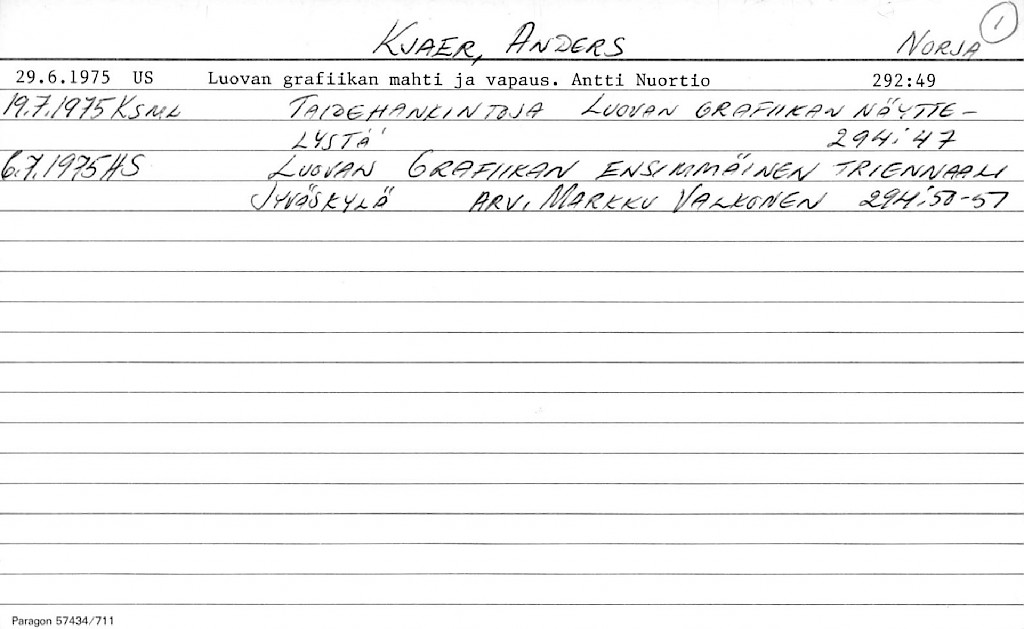 1
KJAER, ANDERS NORJA
29.6.1975 US Luovan grafiikan mahti ja vapaus. Antti Nuortio 292:49
19.7.1975 KSML TAIDEHANKINTOJA LUOVAN GRAFIIKAN NÄYTTE-
LYSTÄ 294:47
6.7.1975 HS LUOVAN GRAFIIKAN ENSIMMÄINEN TRIENNAALI
JYVÄSKYLÄ ARV. MARKKU VALKONEN 294:50-51
Paragon 57434/711